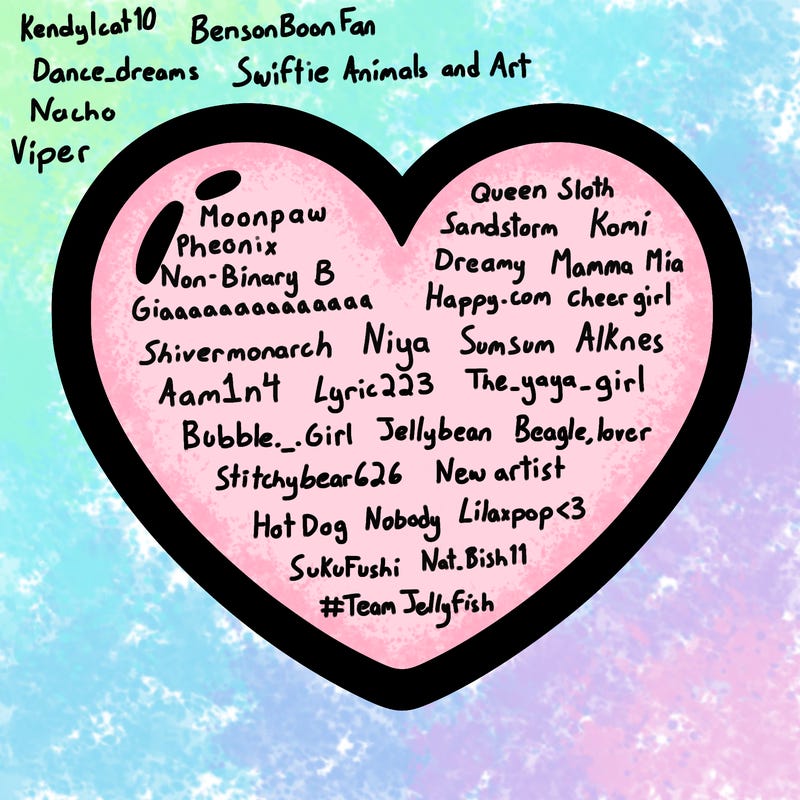 Kendylcat10 BensonBoonFan
Dance_dreams Swiftie Animals and Art
Nacho
Viper
Moonpaw
Pheonix
Non-Binary B
Giaaaaaaaaaaaaaaa
Queen Sloth
Sandstorm Komi
Dreamy Mamma Mia
Happy.com cheer girl
Shivermonarch Niya Sumsum Alknes
Aam1n4 Lyric223 The_yaya_girl
Bubble._.Girl Jellybean Beagle,lover
Stitchybear626 New artist
Hot Dog Nobody Lilaxpop<3
SuKuFushi Nat_Bish11
#Team Jellyfish